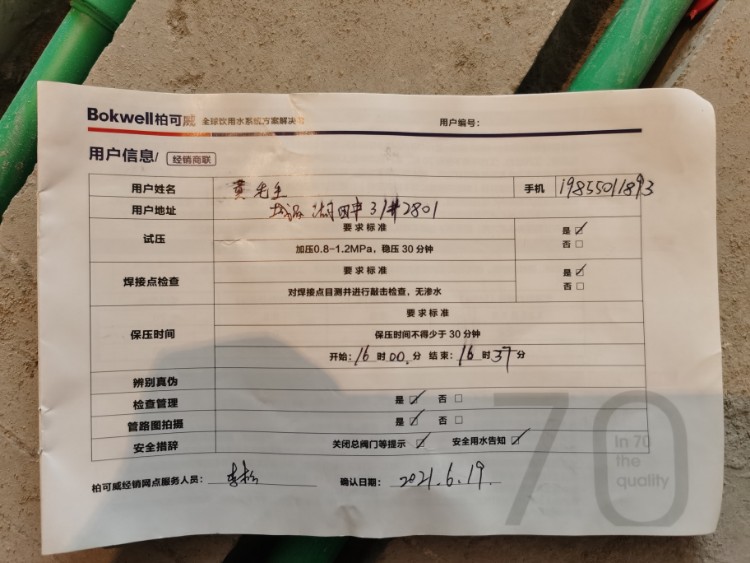 Bokwell柏可威 全球饮用水系统方案解决 用户编号:
用户信息/ 经销商联
用户姓名 黄先生 手机 19855011893
用户地址 31#2801
要求标准
试压 是☑
加压0.8-1.2MPa，稳压30分钟 否□
要求标准
焊接点检查 是☑
对焊接点目测并进行敲击检查，无渗水 否□
要求标准
保压时间 保压时间不得少于30分钟
开始: 16 时 00 分 结束: 16 时 37 分
辨别真伪
检查管理 是☑ 否□
管路图拍摄 是☑ 否□
安全措辞 关闭总阀门等提示☑ 安全用水告知☑
70
In 70
the
quality
柏可威经销网点服务人员: 李松 确认日期: 2021.6.19.